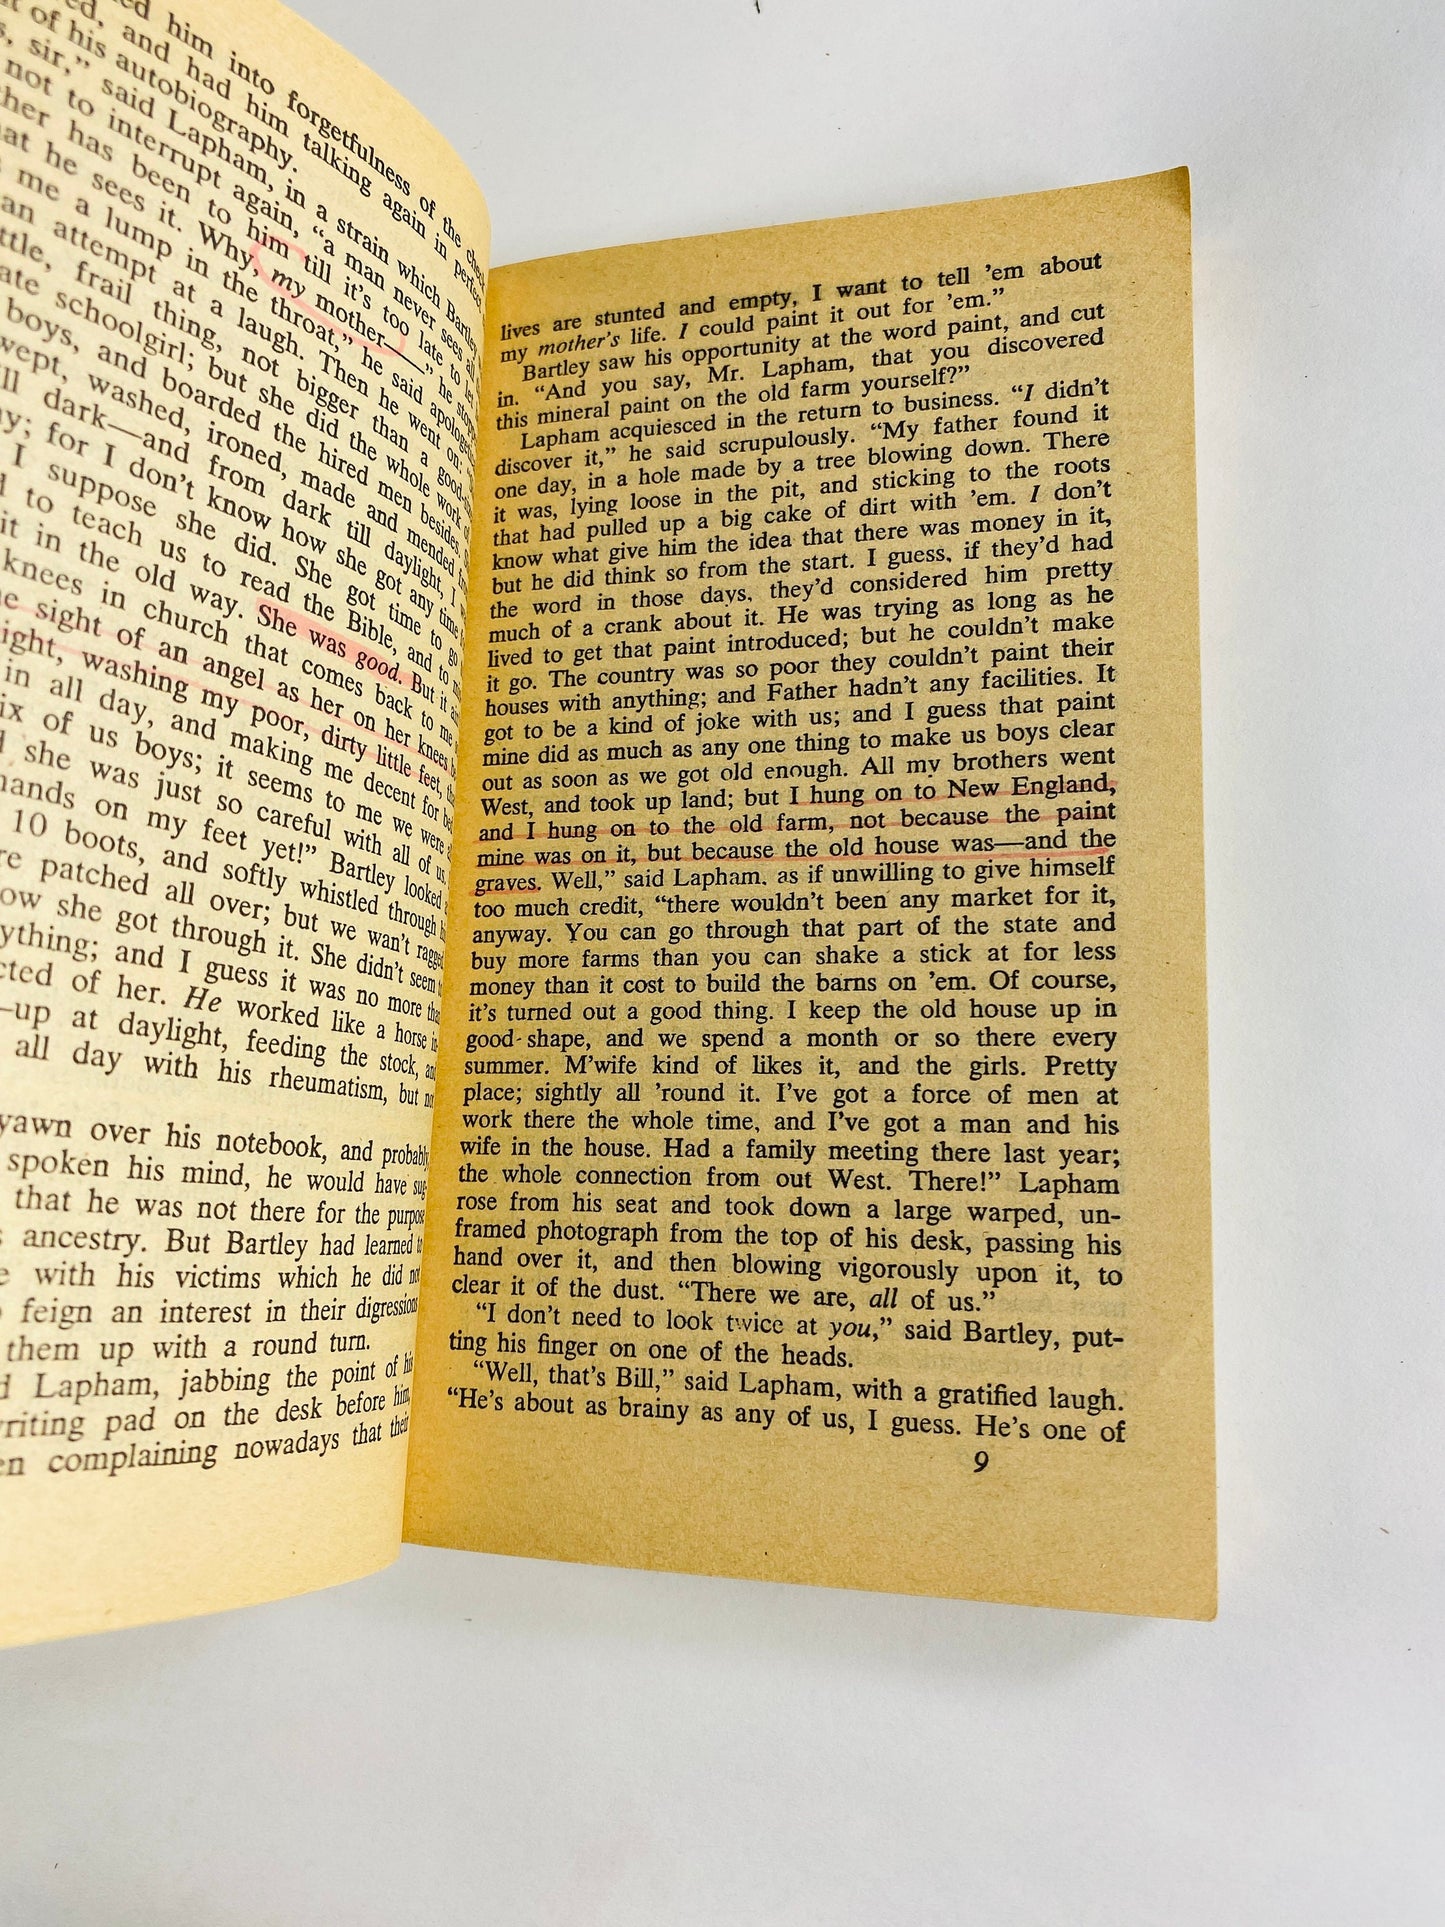 ed him into forgetfulness of the check
ed, and had him talking again in perfect
of his autobiography.
sir," said Lapham, in a strain which Bartley
not to interrupt again, "a man never sees all
her has been to him till it's too late to let
at he sees it. Why, my mother—" he stopped
me a lump in the throat," he said apologetically
an attempt at a laugh. Then he went on:
ttle, frail thing, not bigger than a good-
ate schoolgirl; but she did the whole work of
boys, and boarded the hired men besides.
wept, washed, ironed, made and mended from
ll dark—and from dark till daylight, I
for I don't know how she got any time
I suppose she did. She got time to go
to teach us to read the Bible, and to
it in the old way. She was good. But it
knees in church that comes back to me
he sight of an angel as her on her knees
ight, washing my poor, dirty little feet,
in all day, and making me decent for bed
ix of us boys; it seems to me we were
she was just so careful with all of us.
hands on my feet yet!" Bartley looked
10 boots, and softly whistled through
re patched all over; but we wan't ragged
ow she got through it. She didn't seem
ything; and I guess it was no more than
cted of her. He worked like a horse in-
—up at daylight, feeding the stock, and
all day with his rheumatism, but not
yawn over his notebook, and probably
spoken his mind, he would have sug-
that he was not there for the purpose
ancestry. But Bartley had learned
with his victims which he did not
feign an interest in their digressions
them up with a round turn.
Lapham, jabbing the point of his
writing pad on the desk before him,
en complaining nowadays that their
lives are stunted and empty, I want to tell 'em about
my mother's life. I could paint it out for 'em."
Bartley saw his opportunity at the word paint, and cut
in. "And you say, Mr. Lapham, that you discovered
this mineral paint on the old farm yourself?"
Lapham acquiesced in the return to business. "I didn't
discover it," he said scrupulously. "My father found it
one day, in a hole made by a tree blowing down. There
it was, lying loose in the pit, and sticking to the roots
that had pulled up a big cake of dirt with 'em. I don't
know what give him the idea that there was money in it,
but he did think so from the start. I guess, if they'd had
the word in those days, they'd considered him pretty
much of a crank about it. He was trying as long as he
lived to get that paint introduced; but he couldn't make
it go. The country was so poor they couldn't paint their
houses with anything; and Father hadn't any facilities. It
got to be a kind of joke with us; and I guess that paint
mine did as much as any one thing to make us boys clear
out as soon as we got old enough. All my brothers went
West, and took up land; but I hung on to New England,
and I hung on to the old farm, not because the paint
mine was on it, but because the old house was—and the
graves. Well," said Lapham, as if unwilling to give himself
too much credit, "there wouldn't been any market for it,
anyway. You can go through that part of the state and
buy more farms than you can shake a stick at for less
money than it cost to build the barns on 'em. Of course,
it's turned out a good thing. I keep the old house up in
good shape, and we spend a month or so there every
summer. M'wife kind of likes it, and the girls. Pretty
place; sightly all 'round it. I've got a force of men at
work there the whole time, and I've got a man and his
wife in the house. Had a family meeting there last year;
the whole connection from out West. There!" Lapham
rose from his seat and took down a large warped, un-
framed photograph from the top of his desk, passing his
hand over it, and then blowing vigorously upon it, to
clear it of the dust. "There we are, all of us."
"I don't need to look twice at you," said Bartley, put-
ting his finger on one of the heads.
"Well, that's Bill," said Lapham, with a gratified laugh.
"He's about as brainy as any of us, I guess. He's one of
9